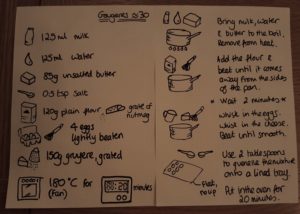 Gougeres x30
125ml milk
125ml water
85g unsalted butter
0.5 tsp salt
120g plain flour
grate of nutmeg
4 eggs
lightly beaten
150g gruyere, grated
180°C for
(fan)
20
minutes
Bring milk, water
& butter to the boil.
Remove from heat.
Add the flour &
beat until it comes
away from the sides
of the pan.
* Wait 2 minutes *
Whisk in the eggs.
Whisk in the cheese.
Beat until smooth.
Use 2 tablespoons
to the mixture onto
a lined tray.
Put in the oven for
20 minutes.